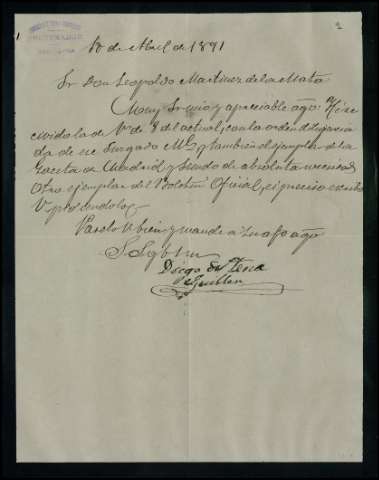 10 de Abril de 1891
Sr Don Leopoldo Martinez de la Mata
Muy Sr mio y apreciable amgo: He re
cibido la de V. de 8 del actual, con la orden diligencia
da de ese Juzgado Ml y tambien el ejemplar de la
Gaceta de Madrid, y siendo de absoluta necesidad
otro ejemplar del Boletin Oficial, es preciso
V.
Paselo V bien y mande a su afo amgo
S S q b s m
Diego de Tena
Guillen